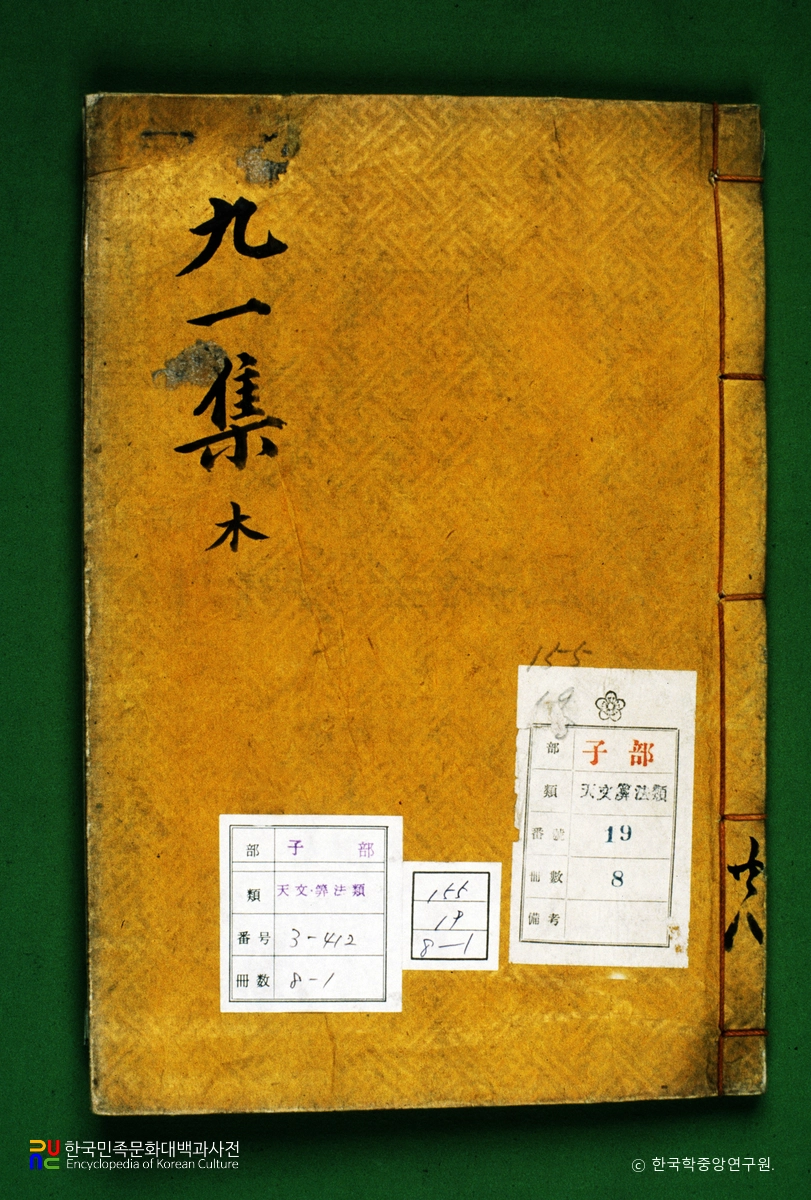 九一集 木
共八
155
19
部 子部
類 天文筭法類
番號 19
冊數 8
備考
部 子部
類 天文·筭法類
番号 3-412
冊数 8-1
155
19
8-1
한국민족문화대백과사전
Encyclopedia of Korean Culture
ⓒ 한국학중앙연구원.